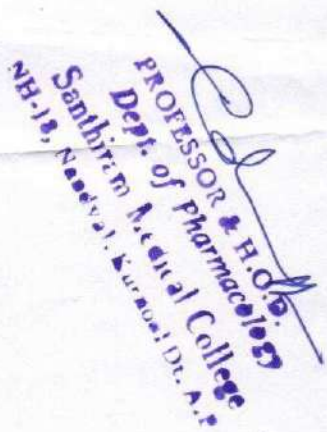 PROFESSOR & H.O.D.
Dept. of Pharmacology
Santhiram Medical College
NH-18, Nandyal, Kurnool Dt. A.P